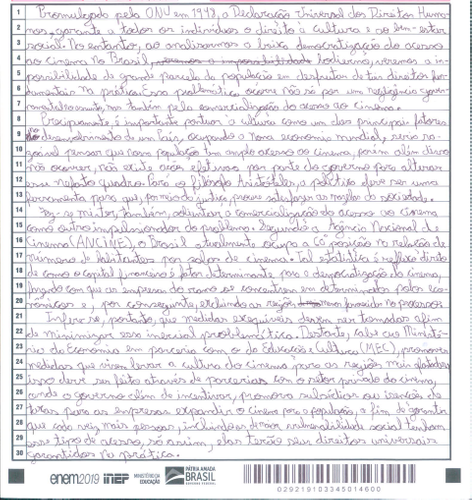 Promulgada pela ONU em 1948, a Declaração Universal dos Direitos Huma-
nos, garante a todos os indivíduos o direito à cultura e ao bem-estar
social. No entanto, ao analisarmos a baixa democratização do acesso
ao cinema no Brasil, hodierno, veremos a im-
possibilidade de grande parcela da população em desfrutar de tais direitos fun-
damentais na prática. Essa problemática ocorre não só por um negligência gover-
namental como, mas também pela comercialização do acesso ao cinema.
Precipuamente, é importante pontuar a cultura como um dos principais fatores
de desenvolvimento de um País, ocupando a nona economia mundial, seria ra-
cional pensar que nossa população tem amplo acesso ao cinema, porém além disso
não ocorrer, não existe ações efetivas por parte do governo para alterar
esse nefasto quadro. Para o filósofo Aristóteles, a política deve ser uma
ferramenta para que, por meio da justiça, procure satisfazer as mazelas da sociedade.
Faz-se mister, também, salientar a comercialização do acesso ao cinema
como outro impulsionador do problema. Segundo a Agência Nacional de
Cinema (ANCINE), o Brasil atualmente ocupa a 60 posição na relação de
número de habitantes por salas de cinema. Tal estatística é reflexo direto
de como o capital financeiro é fator determinante para a democratização do cinema,
fazendo com que as empresas do ramo se concentrem em determinados polos eco-
nômicos e, por conseguinte, excluindo as regiões menos favorecidas no processo.
Infere-se, portanto, que medidas exequíveis devem ser tomadas afim
de minimizar essa inercial problemática. Destarte, cabe ao Ministé-
rio da Economia em parceria com o da Educação e Cultura (MEC), promover
medidas que visem levar a cultura do cinema para as regiões mais afastadas
isso deve ser feito através de parcerias com o setor privado do cinema,
onde o governo além de incentivar, promova subsídios ou isenções de
taxas para as empresas expandir o cinema para a população, a fim de garantir
que cada vez mais pessoas, incluindo as de vulnerabilidade social tenham
esse tipo de acesso, só assim, elas terão seus direitos universais
garantidos na prática.
enem2019 INEP MINISTÉRIO DA EDUCAÇÃO PÁTRIA AMADA BRASIL GOVERNO FEDERAL
029219103345014600